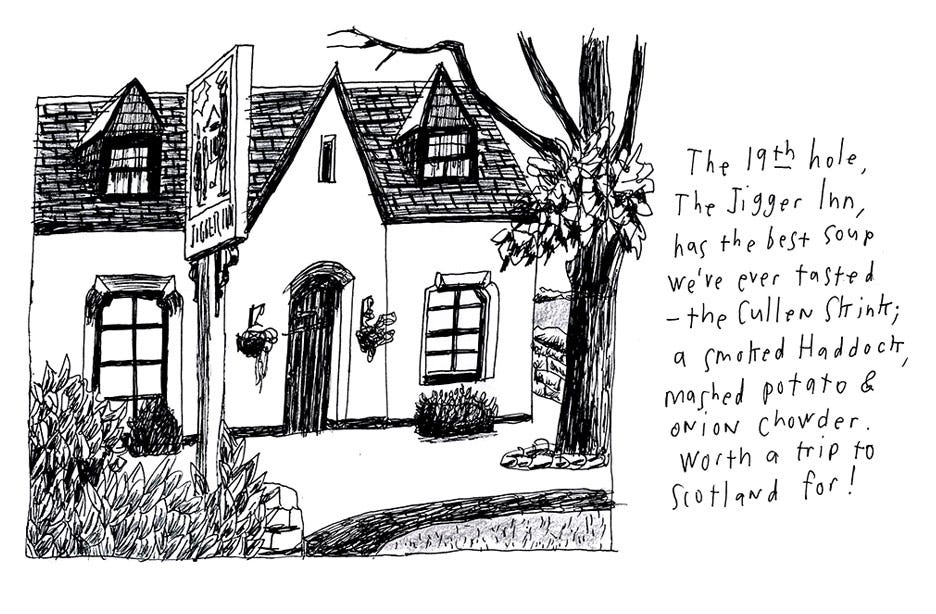 JIGGER INN
The 19th hole,
The Jigger Inn,
has the best soup
we've ever tasted
- the Cullen Skink;
a smoked Haddock,
mashed potato &
onion chowder.
Worth a trip to
Scotland for!